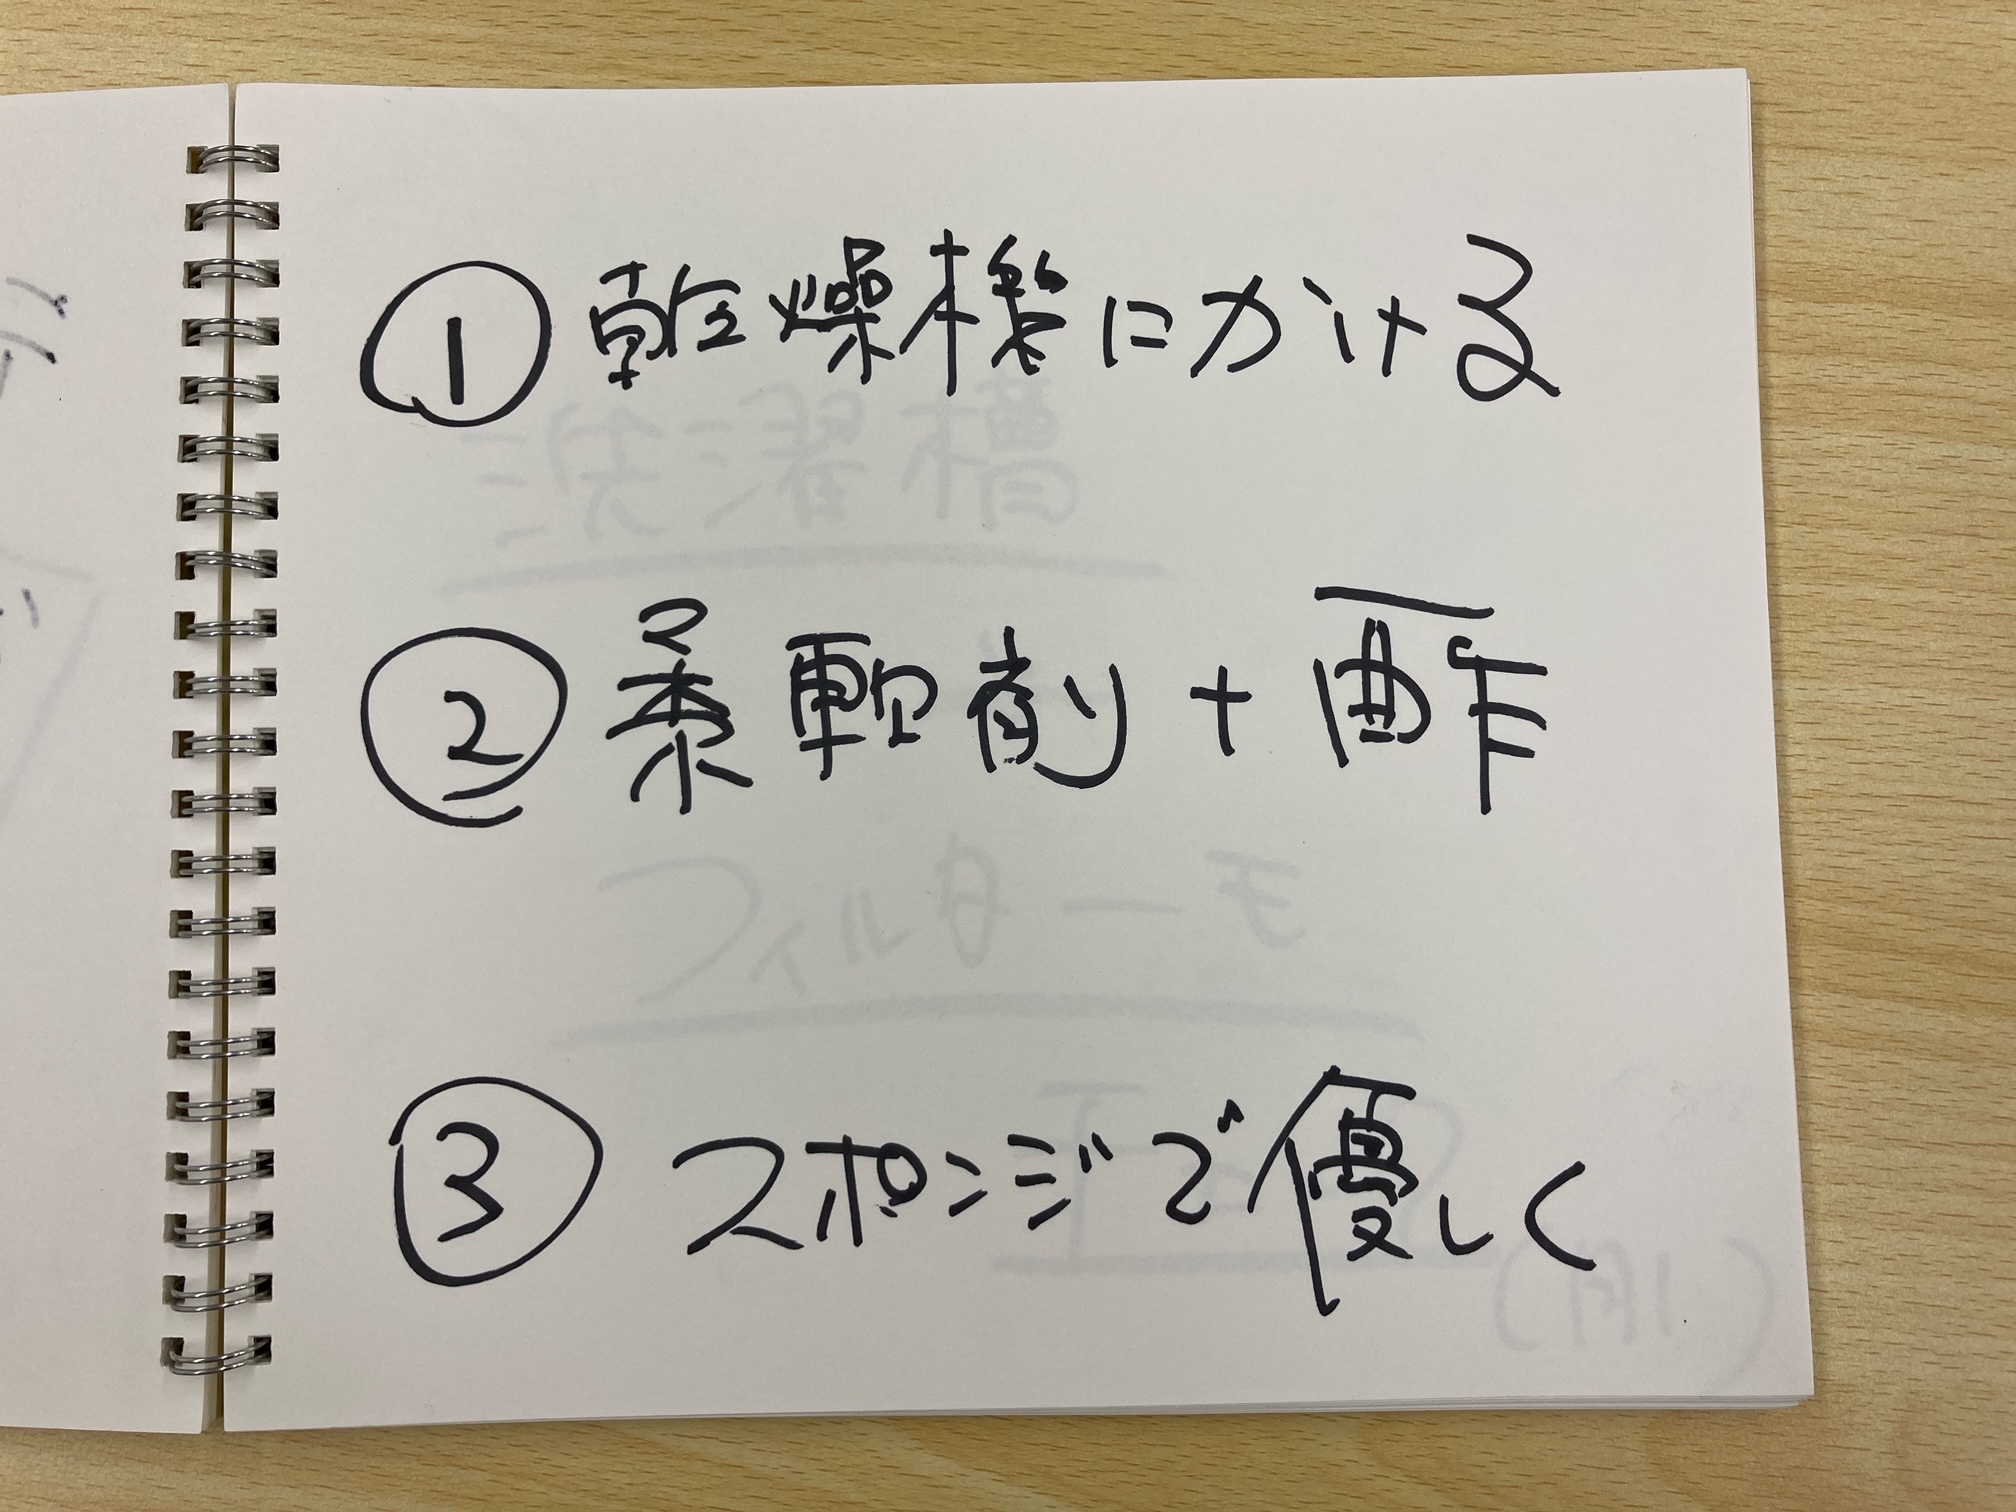 ① 乾燥機にかける
② 柔軟剤+酢
③ スポンジで優しく